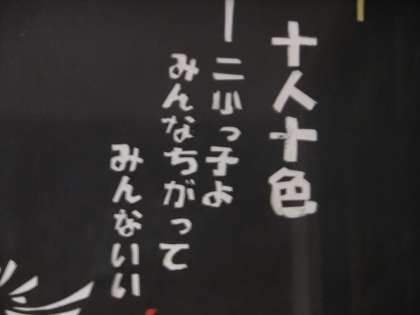 十人十色
ー二小っ子よ
みんなちがって
みんないい